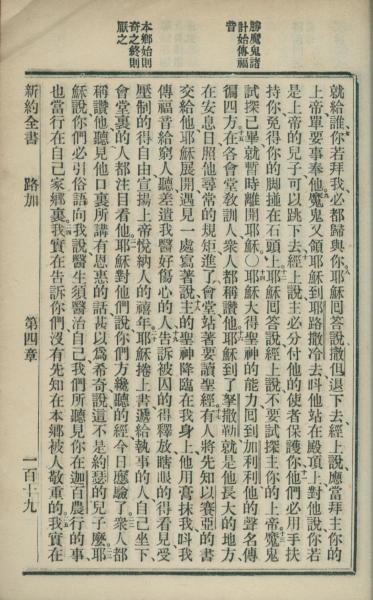 勝魔鬼諸
計始傳福
音
本鄉始則
奇之終則
厭之
就給誰你若拜我必都歸與你耶穌回答說撒但退下去經上說應當拜主你的
上帝單要事奉他魔鬼又領耶穌到耶路撒冷去叫他站在殿頂上對他說你若
是上帝的兒子可以跳下去經上說主必分付他的使者保護你他們必用手扶
持你免得你的脚撞在石頭上耶穌回答說經上說不要試探主你的上帝魔鬼
試探已畢就暫時離開耶穌〇耶穌大得聖神的能力回到加利利他的聲名傳
徧四方在各會堂教訓人衆人都稱讚他耶穌到了拏撒勒就是他長大的地方
在安息日照他尋常的規矩進了會堂站著要讀聖經有人將先知以賽亞的書
交給他耶穌展開遇見一處寫著說主的聖神降臨在我身上他用膏抹我叫我
傳福音給窮人聽差遣我醫好傷心的人告訴被囚的得釋放瞎眼的得看見受
壓制的得自由宣揚上帝悅納人的禧年耶穌捲上書遞給執事的人自己坐下
會堂裏的人都注目看他耶穌對他們說你們方纔聽的經今日應驗了衆人都
稱讚他聽見他口裏所講有恩惠的話甚以爲希奇說這不是約瑟的兒子麼耶
穌說你們必引俗語向我說醫生須醫治自己我們所聽見你在迦百農行的事
也當行在自己家鄉裏我實在告訴你們沒有先知在本鄉被人敬重的我實在
新約全書　路加　第四章　一百十九